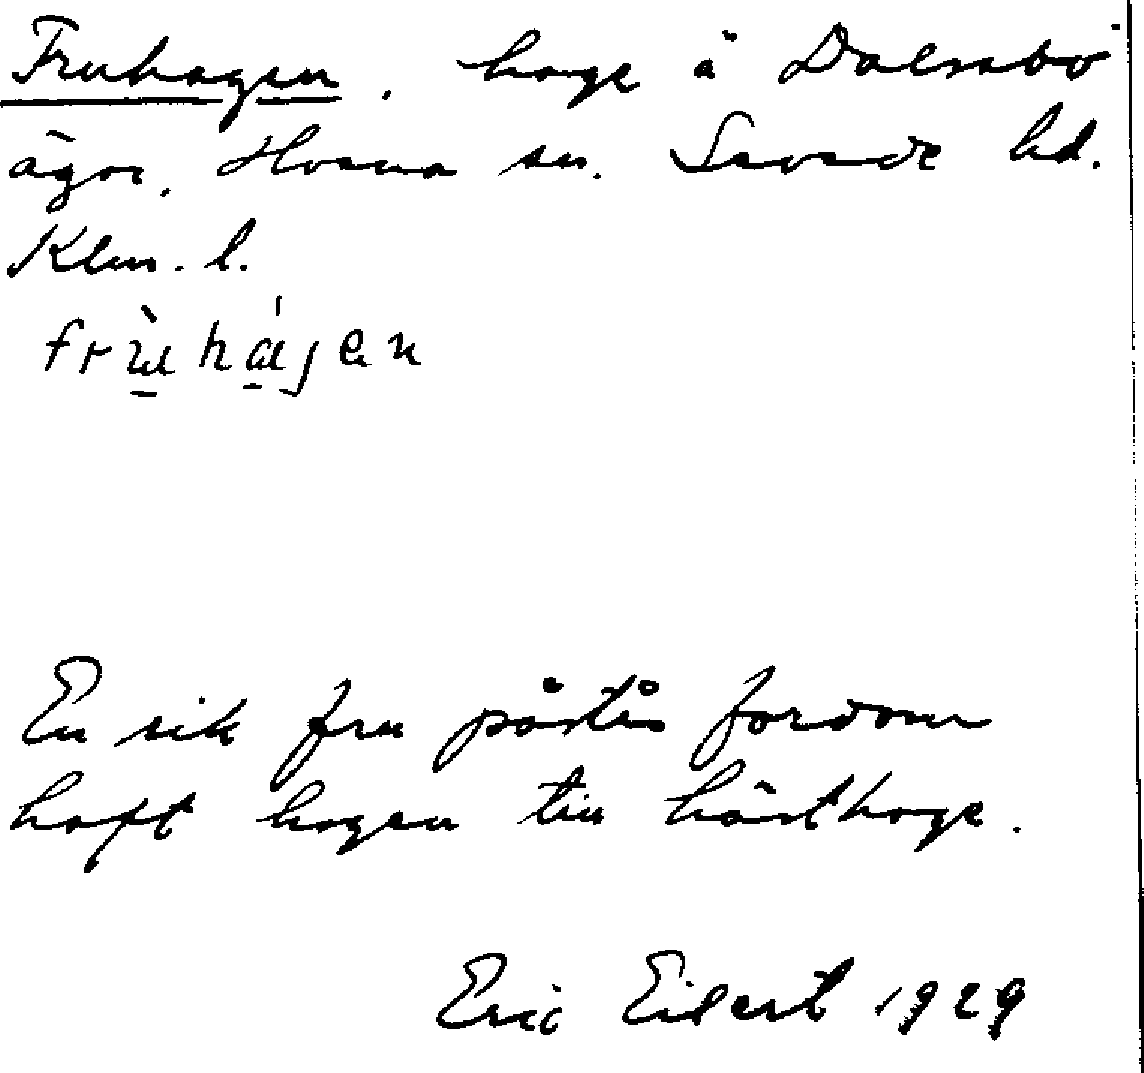 Fruhagen. hage å Dalsabo
ägor. Hova sn. Vadsbo hd.
frùhágen
En rik fru påstås fordom
haft hagen till hästhage.
Eric Eilert 1929